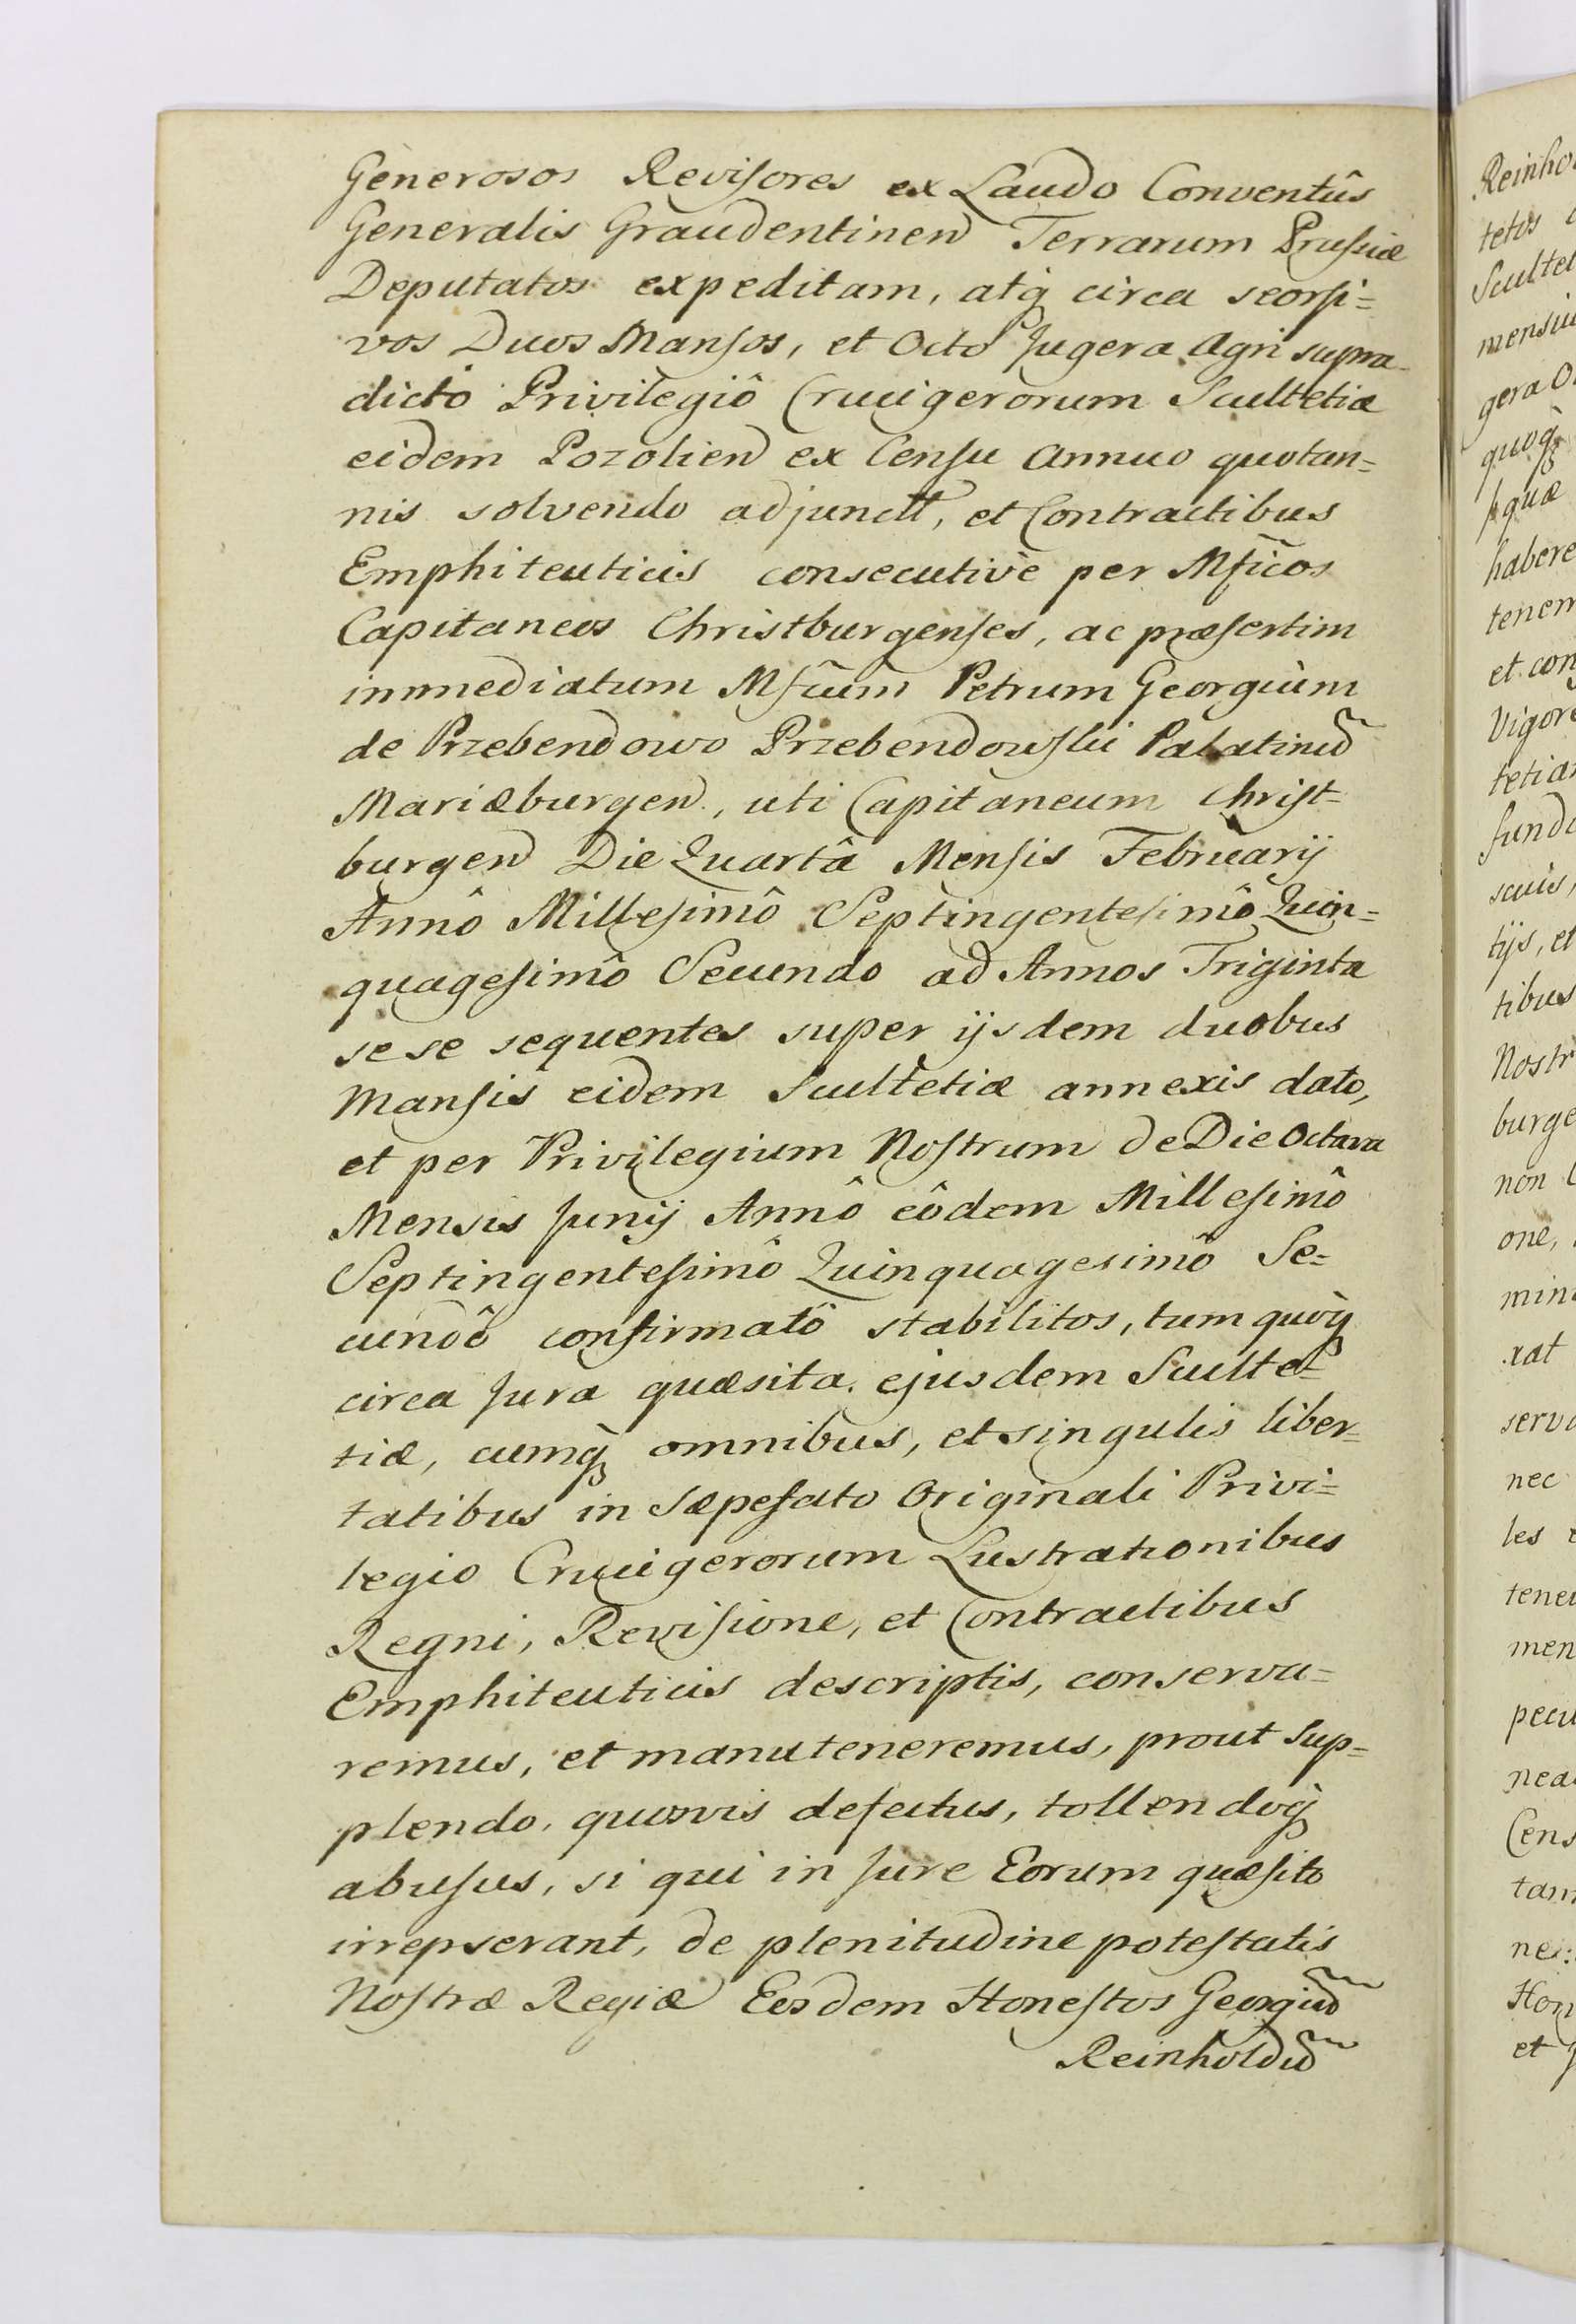 Generosos Revisores ex Laudo Conventûs
Generalis Graudentinen Terrarum Prussiæ
Deputatos expeditam, atq̀ circa seorsi=
vos Duos Mansos, et Octo Jugera Agri supra-
dictô Privilegiô Crucigerorum Scultetiæ
eidem Pozolien ex Censu Annuo quotan=
nis solvendo adjunctt, et Contractibus
Emphiteuticis consecutivè per Mficos
Capitaneos Christburgenses, ac præsertim
immediatum Mficum Petrum Georgium
de Przebendowo Przebendowski Palatinũ
Mariæburgen., uti Capitaneum Christ=
burgen Die Quartâ Mensis Februarij
Annô Millesimô Septingentesimô Quin=
quagesimô Secundo ad Annos Triginta
sese sequentes super ijsdem duobus
Mansis eidem Scultetiæ annexis dato,
et per Privilegium Nostrum de Die Octava
Mensis Junij Annô eôdem Millesimô
Septingentesimô Quinquagesimô Se=
cundô confirmatô stabilitos, tum quoq̀
circa Jura quæsita ejusdem Sculte=
tiæ, cumq̀ omnibus, et singulis liber=
tatibus in Sæpefato Originali Privi=
legio Crucigerorum Lustrationibus
Regni, Revisione, et Contractibus
Emphiteuticis descriptis, conserva=
remus, et manuteneremus, prout sup=
plendo quosvis defectus, tollendoq̀
abusus, si qui in Jure Eorum quæsito
irrepserant, de plenitudine potestatis
Nostræ Regiæ Eosdem Honestos Georgiũ
Reinholdũ
Reinho
tetos
Scultet
mensiu
gera O
quoq̀
quæ
habere
tenem
et con
Vigore
tetia
fundo
scuis,
tijs, et
tibus
Nostr
burge
non
one,
min
xat
serv
nec
les
tene
men
pecu
nea
Cens
tam
nes
Hon
et